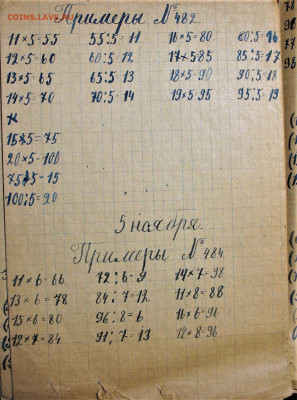 COINS.LAV.RU
Примеры № 482.
11×5=55 55:5=11 16×5=80 80:5=16
12×5=60 60:5=12 17×5=85 85:5=17
13×5=65 65:5=13 18×5=90 90:5=18
14×5=70 70:5=14 19×5=95 95:5=19
15×5=75
20×5=100
75:5=15
100:5=20
5 ноября.
Примеры № 484
11×6=66 72:6=9 14×7=98
13×6=78 84:7=12 11×8=88
15×6=80 96:8=6 16×6=96
12×7=84 91:7=13 12×8=96